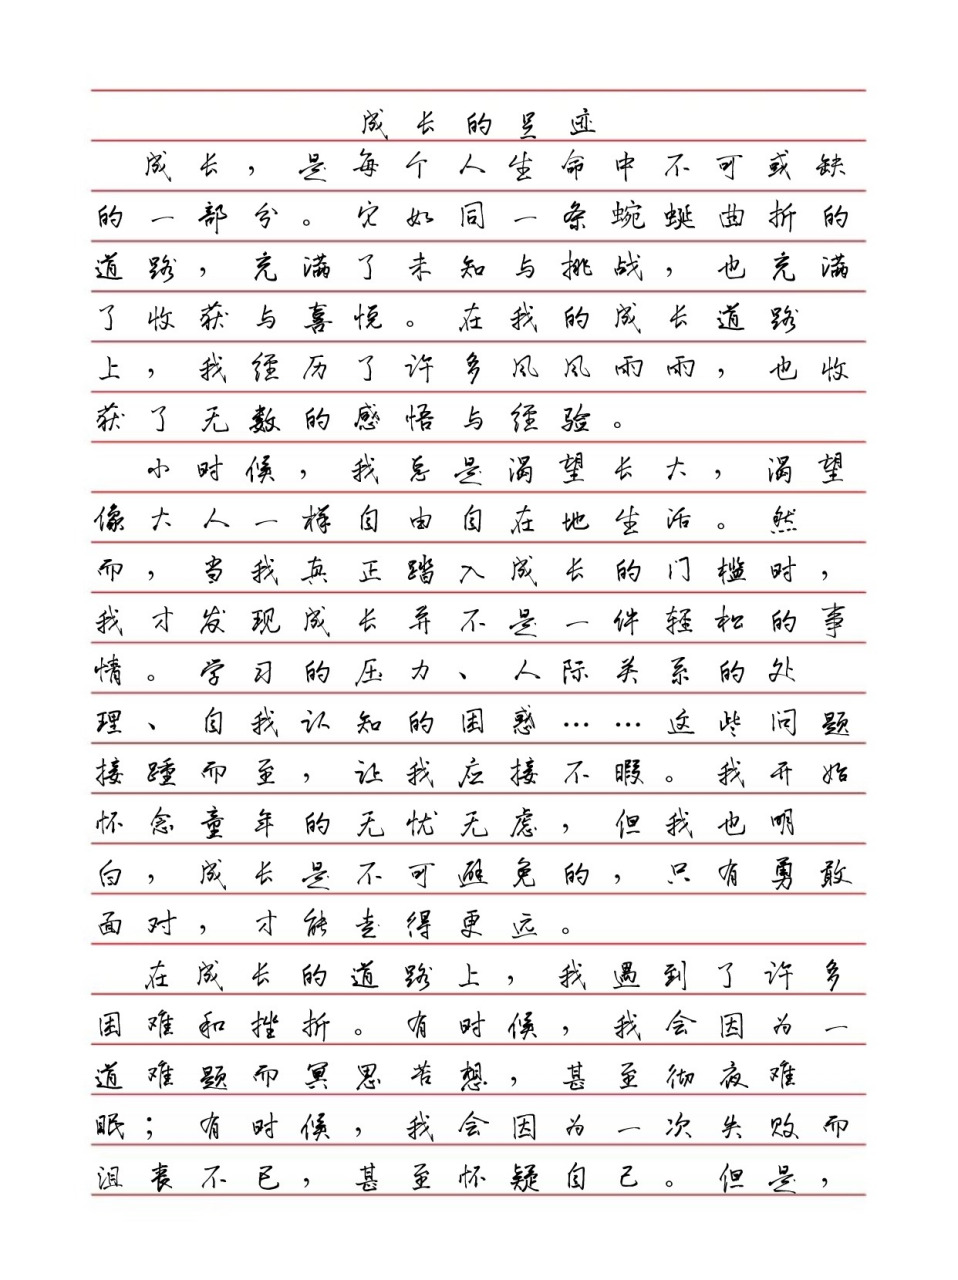 成长的足迹
成长，是每个人生命中不可或缺
的一部分。它如同一条蜿蜒曲折的
道路，充满了未知与挑战，也充满
了收获与喜悦。在我的成长道路
上，我经历了许多风风雨雨，也收
获了无数的感悟与经验。
小时候，我总是渴望长大，渴望
像大人一样自由自在地生活。然
而，当我真正踏入成长的门槛时，
我才发现成长并不是一件轻松的事
情。学习的压力、人际关系的处
理、自我认知的困惑……这些问题
接踵而至，让我应接不暇。我开始
怀念童年的无忧无虑，但我也明
白，成长是不可避免的，只有勇敢
面对，才能走得更远。
在成长的道路上，我遇到了许多
困难和挫折。有时候，我会因为一
道难题而冥思苦想，甚至彻夜难
眠；有时候，我会因为一次失败而
沮丧不已，甚至怀疑自己。但是，